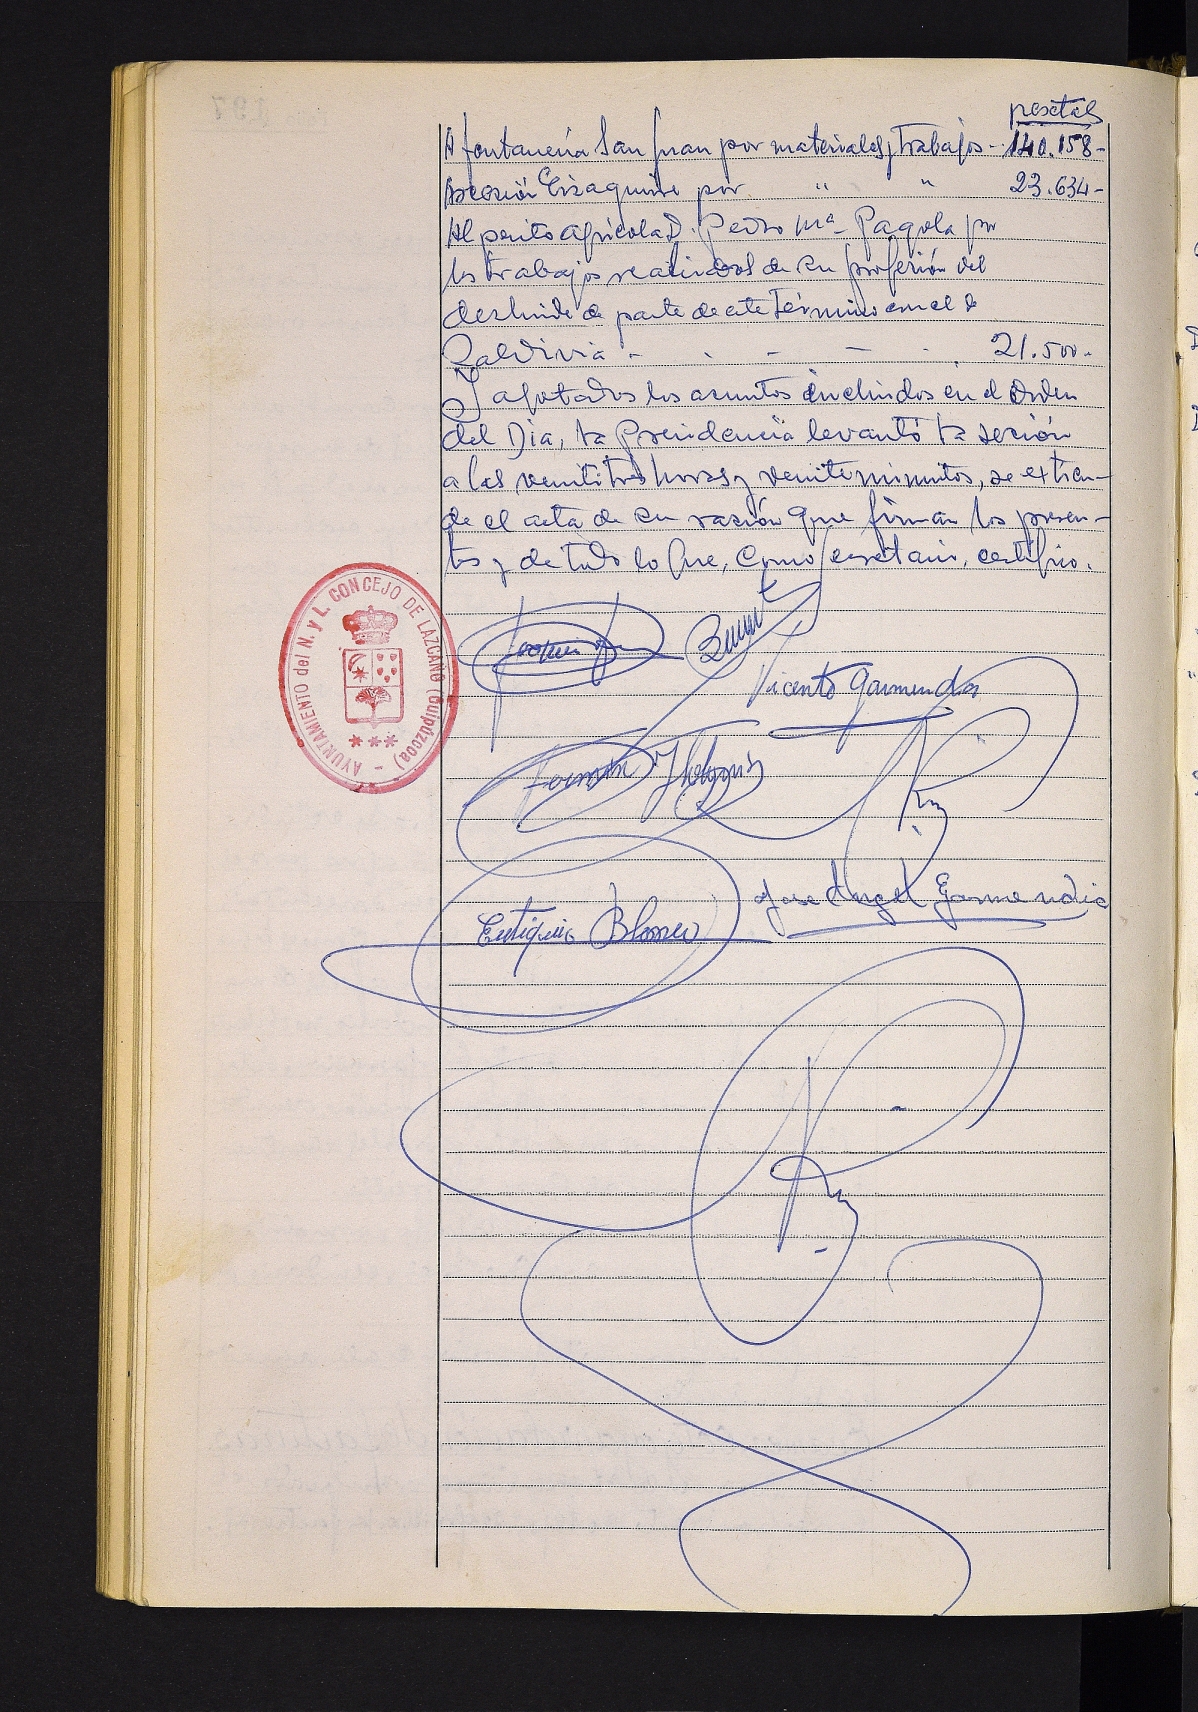 pesetas
A fontanería San Juan por materiales y trabajos - 140.158-
Ascensión Eizaguirre por " " 23.634-
Al perito agrícola D. Pedro Mª Pagola por
los trabajos realizados de su profesión del
deslinde de parte de este término con el de
Zaldivia - - - - - 21.500-
Y agotados los asuntos incluidos en el Orden
del Día, la Presidencia levantó la sesión
a las veintitres horas y veinte minutos, se extien-
de el acta de su razón que firman los presen-
tes y de todo lo que, como secretario, certifico.
AYUNTAMIENTO del N. y L. CONCEJO DE LAZCANO (Guipúzcoa)
Vicente Garmendia
Jose Angel Garmendia
Eutiquio Blanco